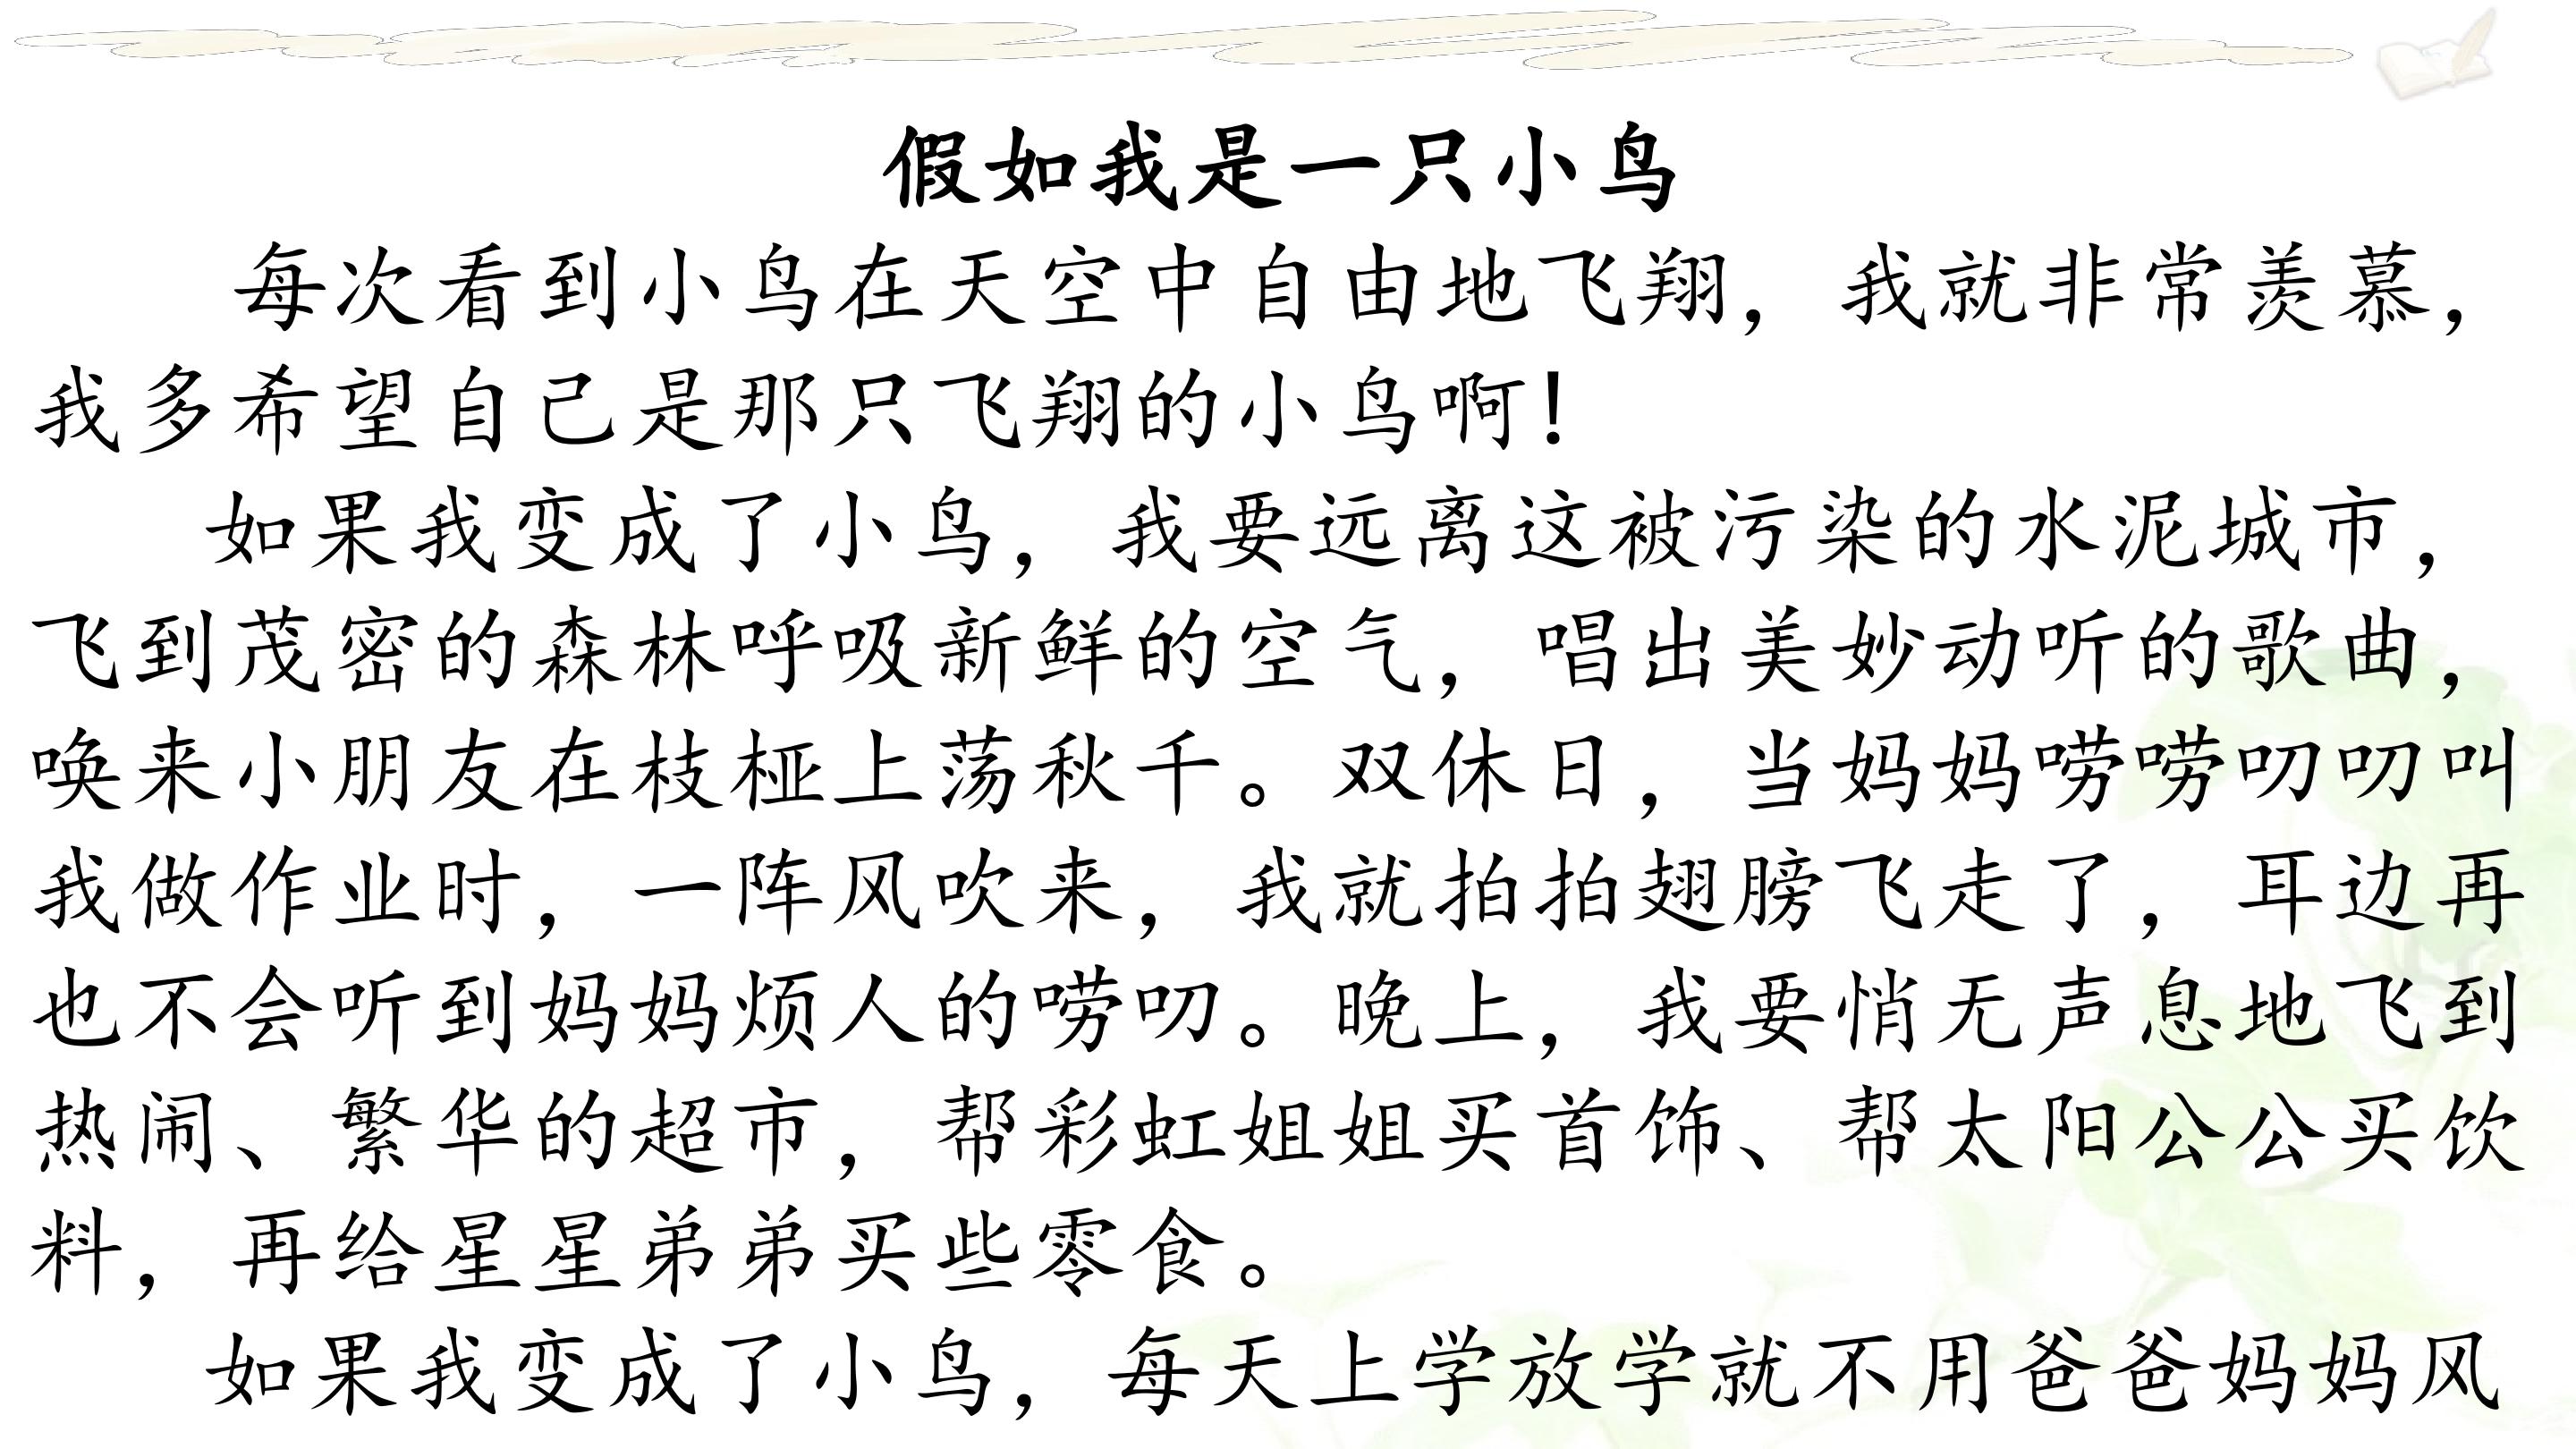 假如我是一只小鸟
每次看到小鸟在天空中自由地飞翔，我就非常羡慕，
我多希望自己是那只飞翔的小鸟啊！
如果我变成了小鸟，我要远离这被污染的水泥城市，
飞到茂密的森林呼吸新鲜的空气，唱出美妙动听的歌曲，
唤来小朋友在枝桠上荡秋千。双休日，当妈妈唠唠叨叨叫
我做作业时，一阵风吹来，我就拍拍翅膀飞走了，耳边再
也不会听到妈妈烦人的唠叨。晚上，我要悄无声息地飞到
热闹、繁华的超市，帮彩虹姐姐买首饰、帮太阳公公买饮
料，再给星星弟弟买些零食。
如果我变成了小鸟，每天上学放学就不用爸爸妈妈风